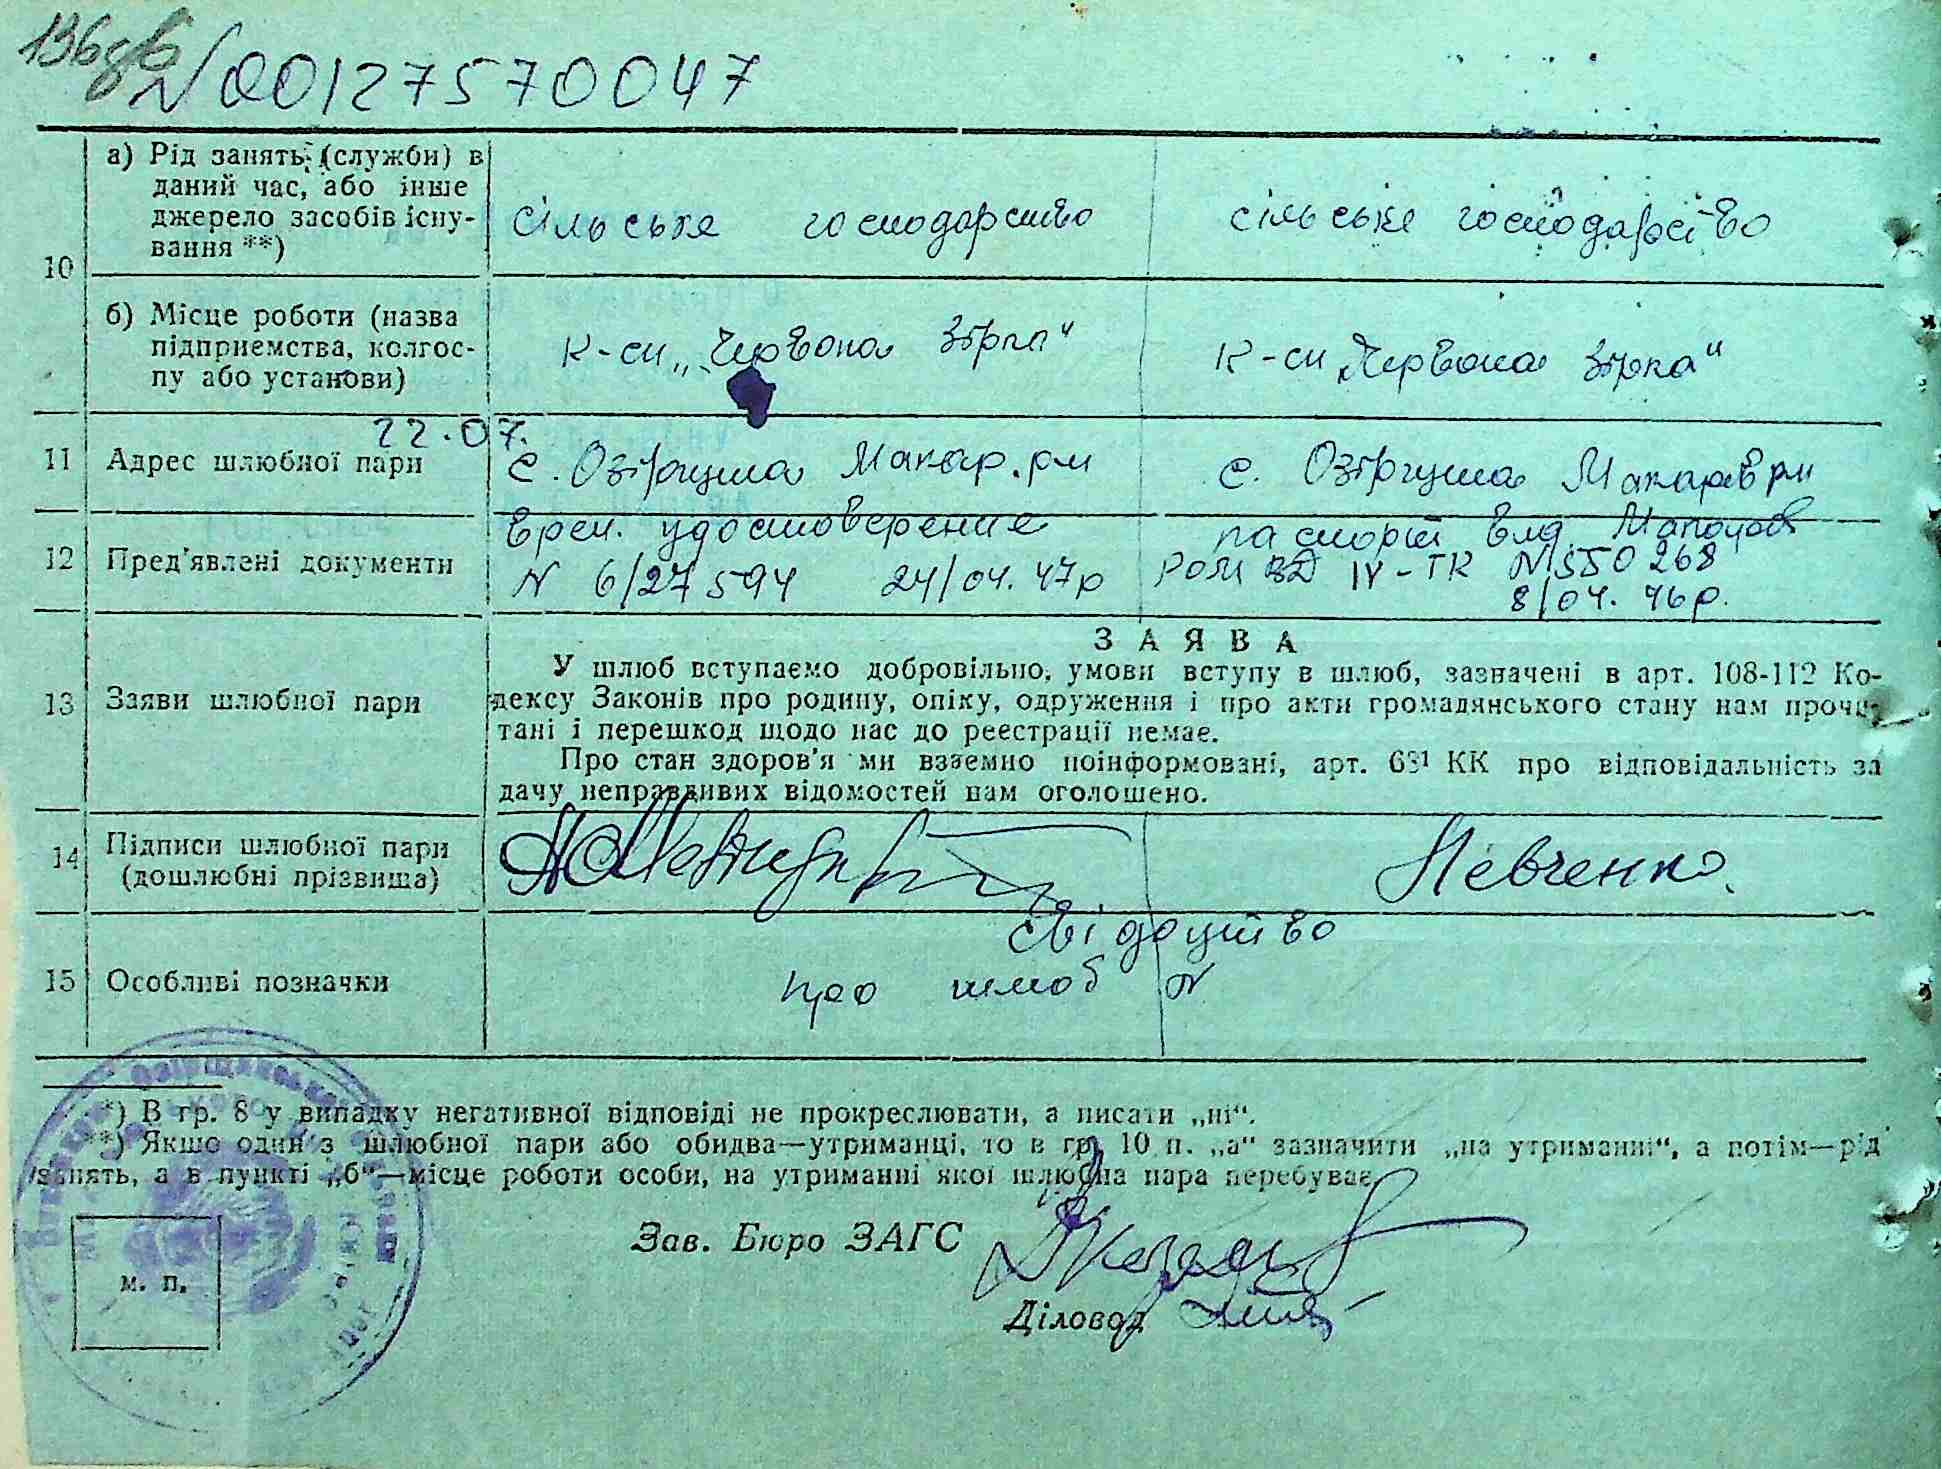 136зв
N 00127570047
10
а) Рід занять (служби) в даний час, або інше джерело засобів існування **)
сільське господарство
сільське господарство
б) Місце роботи (назва підприємства, колгоспу або установи)
к-сп „Червона Зірка“
к-сп „Червона Зірка“
22.07.
11
Адрес шлюбної пари
с. Озірщина Макар. р-н
с. Озірщина Макарів р-н
12
Пред'явлені документи
врем. удостоверение
N 6/27594 24/04. 47р
паспорт вид.
IV-ТК N 550268
8/04. 46р.
13
Заяви шлюбної пари
ЗАЯВА
У шлюб вступаємо добровільно, умови вступу в шлюб, зазначені в арт. 108-112 Ко-
дексу Законів про родину, опіку, одруження і про акти громадянського стану нам прочи-
тані і перешкод щодо нас до реєстрації немає.
Про стан здоров'я ми взаємно поінформовані, арт. 63¹ КК про відповідальність за
дачу неправдивих відомостей нам оголошено.
14
Підписи шлюбної пари
(дошлюбні прізвища)
Левченко.
15
Особливі позначки
свідоцтво
про шлюб N
*) В гр. 8 у випадку негативної відповіді не прокреслювати, а писати „ні“.
**) Якщо один з шлюбної пари або обидва—утриманці, то в гр. 10 п. „а“ зазначити „на утриманні“, а потім—рід
занять, а в пункті „б“—місце роботи особи, на утриманні якої шлюбна пара перебуває.
Зав. Бюро ЗАГС
Діловод
м. п.